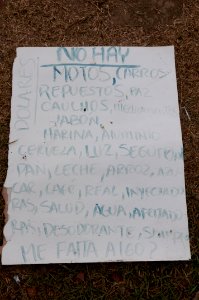 NO HAY
DOLARES
MOTOS, CARROS
REPUESTOS, PAZ
CAUCHOS, MEDICAMENTOS
JABON,
HARINA, ALUMINIO
CERVEZA, LUZ, SEGURIDAD
PAN, LECHE, ARROZ, AZU
CAR, CAFÉ, REAL, INYECTADO
RAS, SALUD, AGUA, AFEITADO
RAS, DESODORANTE,
ME FALTA ALGO?